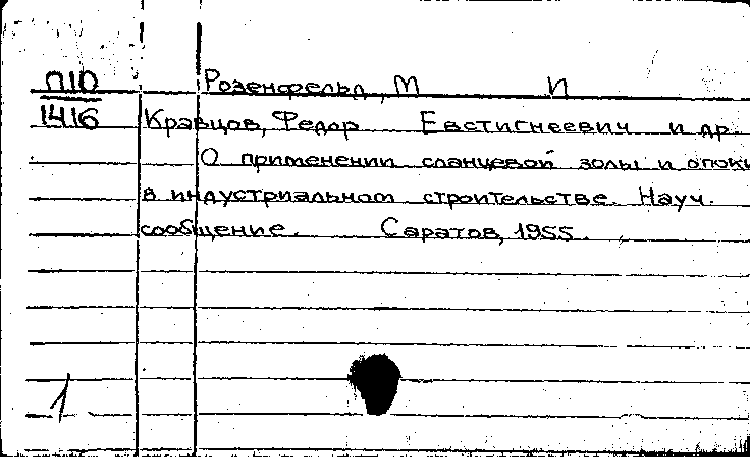 П10 Розенфельд, М И
1416 Кравцов, Федор Евстигнеевич и др.
О применении сланцевой золы и опоки
в индустриальном строительстве. Науч.
сообщение. Саратов, 1955.
1